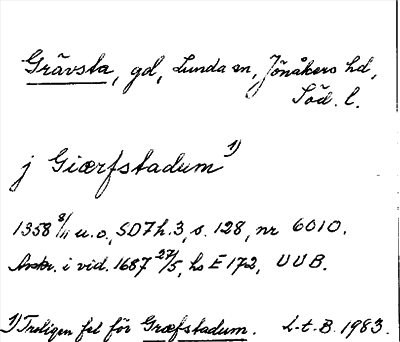 Grävsta, gd, Lunda sn, Jönåkers hd,
Söd. l.
j Giærfstadum 1)
1358 8/11 u.o., SD7h.3, s. 128, nr 6010.
Avskr. i vid. 1687 27/5, hs E 172, UUB.
1) Troligen fel för Græfstadum. L-t-B. 1983.